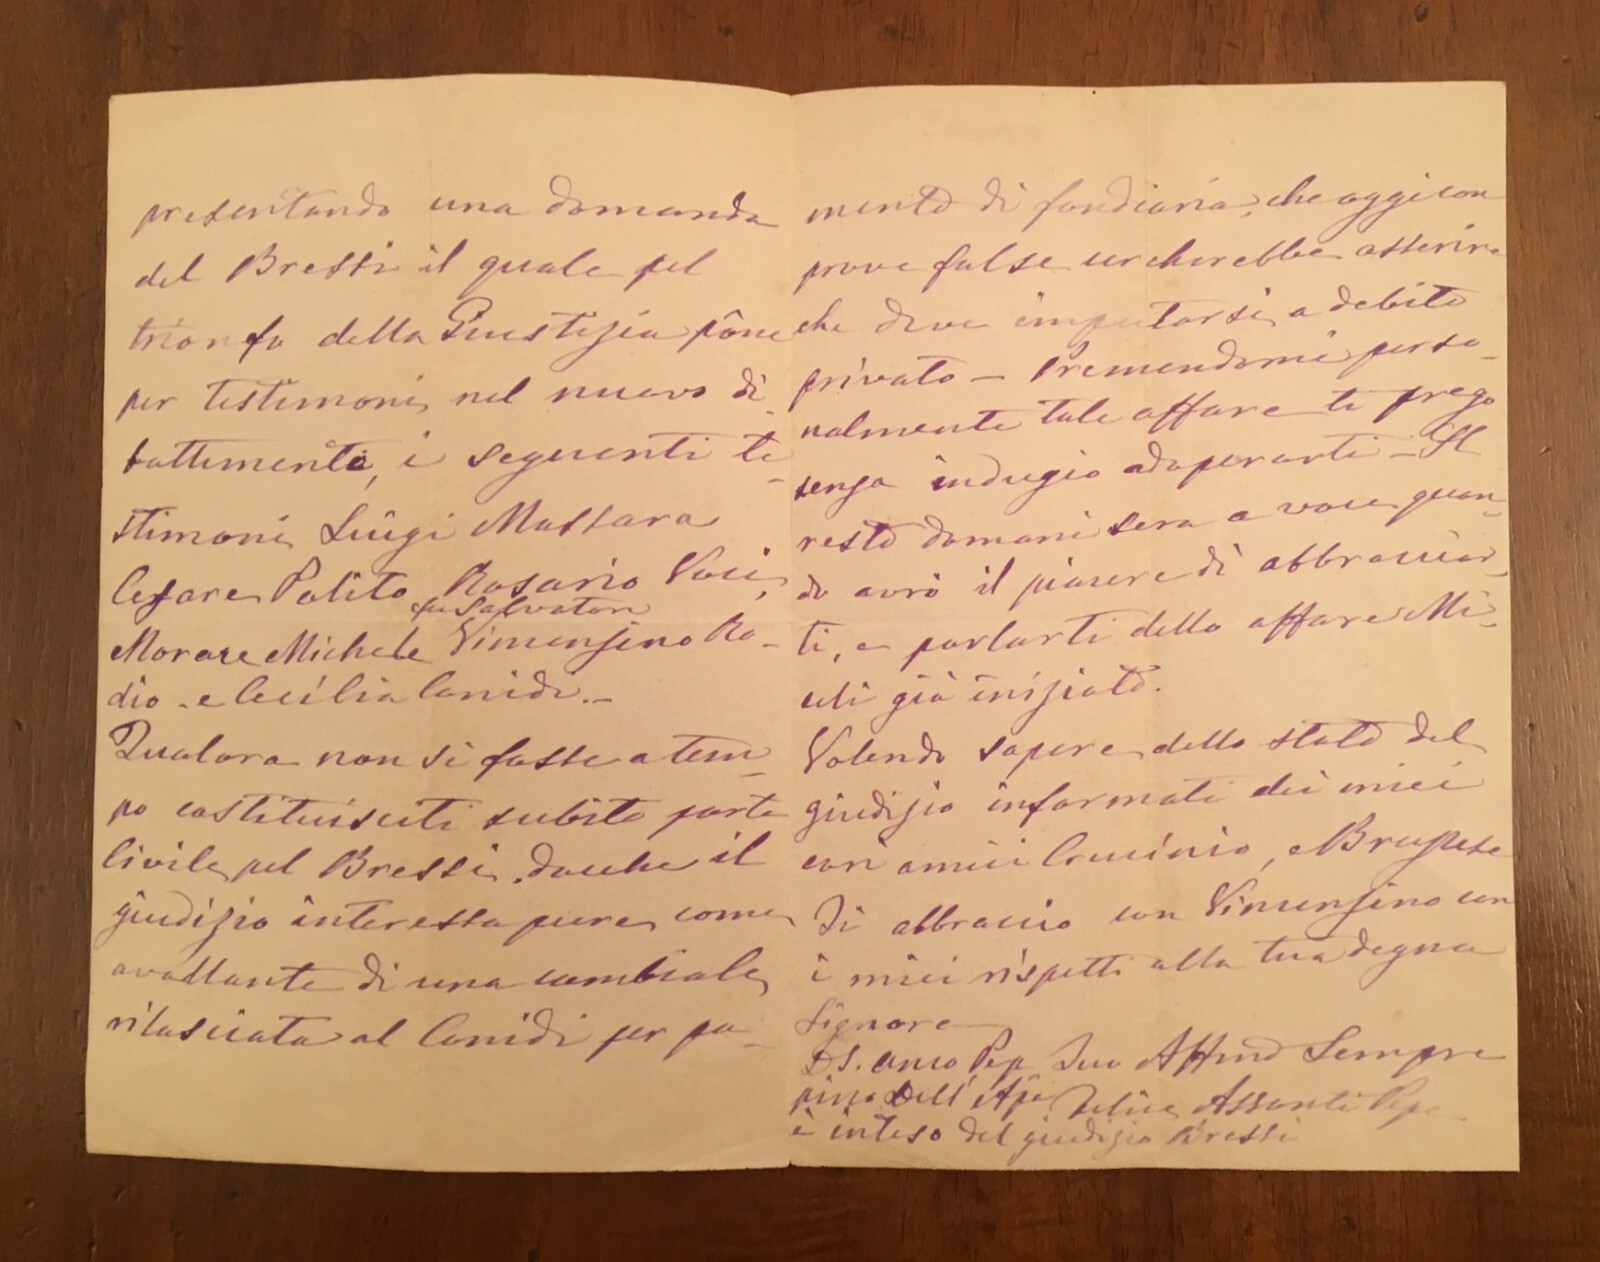 presentando una domanda
del Bressi il quale pel
trionfo della Giustizia pone
per testimoni, nel nuovo di
battimento, i seguenti te-
stimoni Luigi Massara
Cesare Polito, Rosario Voci,
fu Salvatore
Morace Michele Vincenzino Ro-
dio - e Cecilia Canidi.-
Qualora non si fosse a tem-
po costituisciti subito parte
Civile, pel Bressi, dacche il
giudizio interessa pure, come
avallante di una cambiale,
rilasciata al Canidi per pa-
mento di fondiaria, che oggi con
prove false cercherebbe asserire
che deve imputarsi a debito
privato - Premendomi perso-
nalmente tale affare ti prego
senza indugio adoperarti - Il
resto domani sera a voce quan-
do avrò il piacere di abbracciar
ti, e parlarti dello affare Mi-
celi già iniziato.
Volendo sapere dello stato del
giudizio informati dei miei
cari amici Cracinio, e
Ti abbraccio con Vincenzino con
i miei rispetti alla tua degna
Signora
D.S. Pep Tuo Affmo Sempre
pino Dell'Apa Felice Assanti Pepe
è inteso del giudizio Bressi